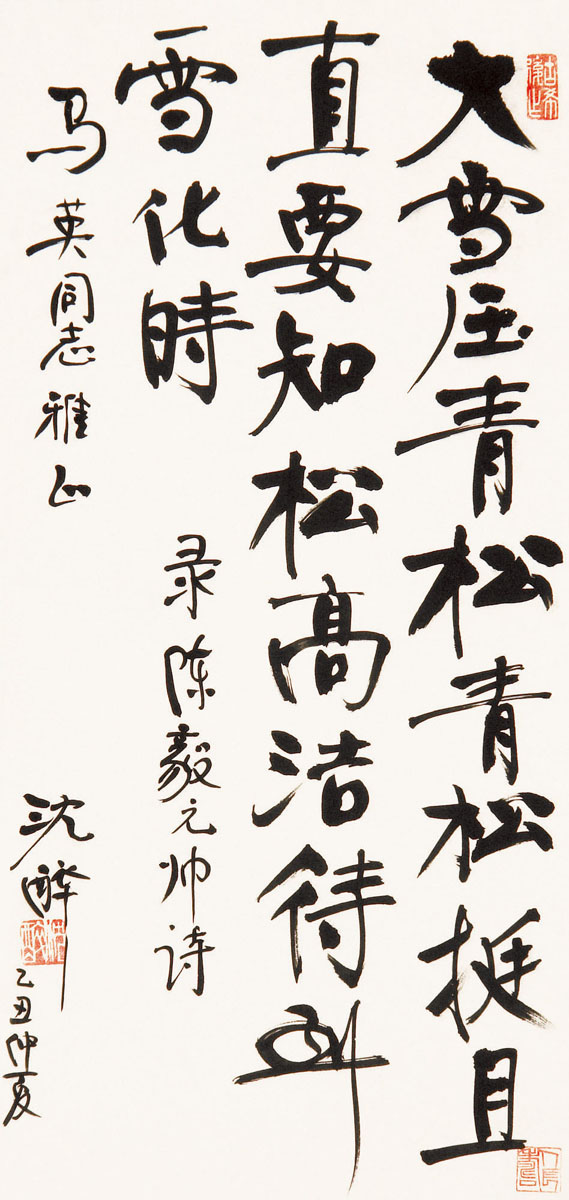 大雪压青松青松挺且
直要知松高洁待到
雪化時
录陈毅元帅诗
马英同志雅正
沈醉
乙丑仲夏